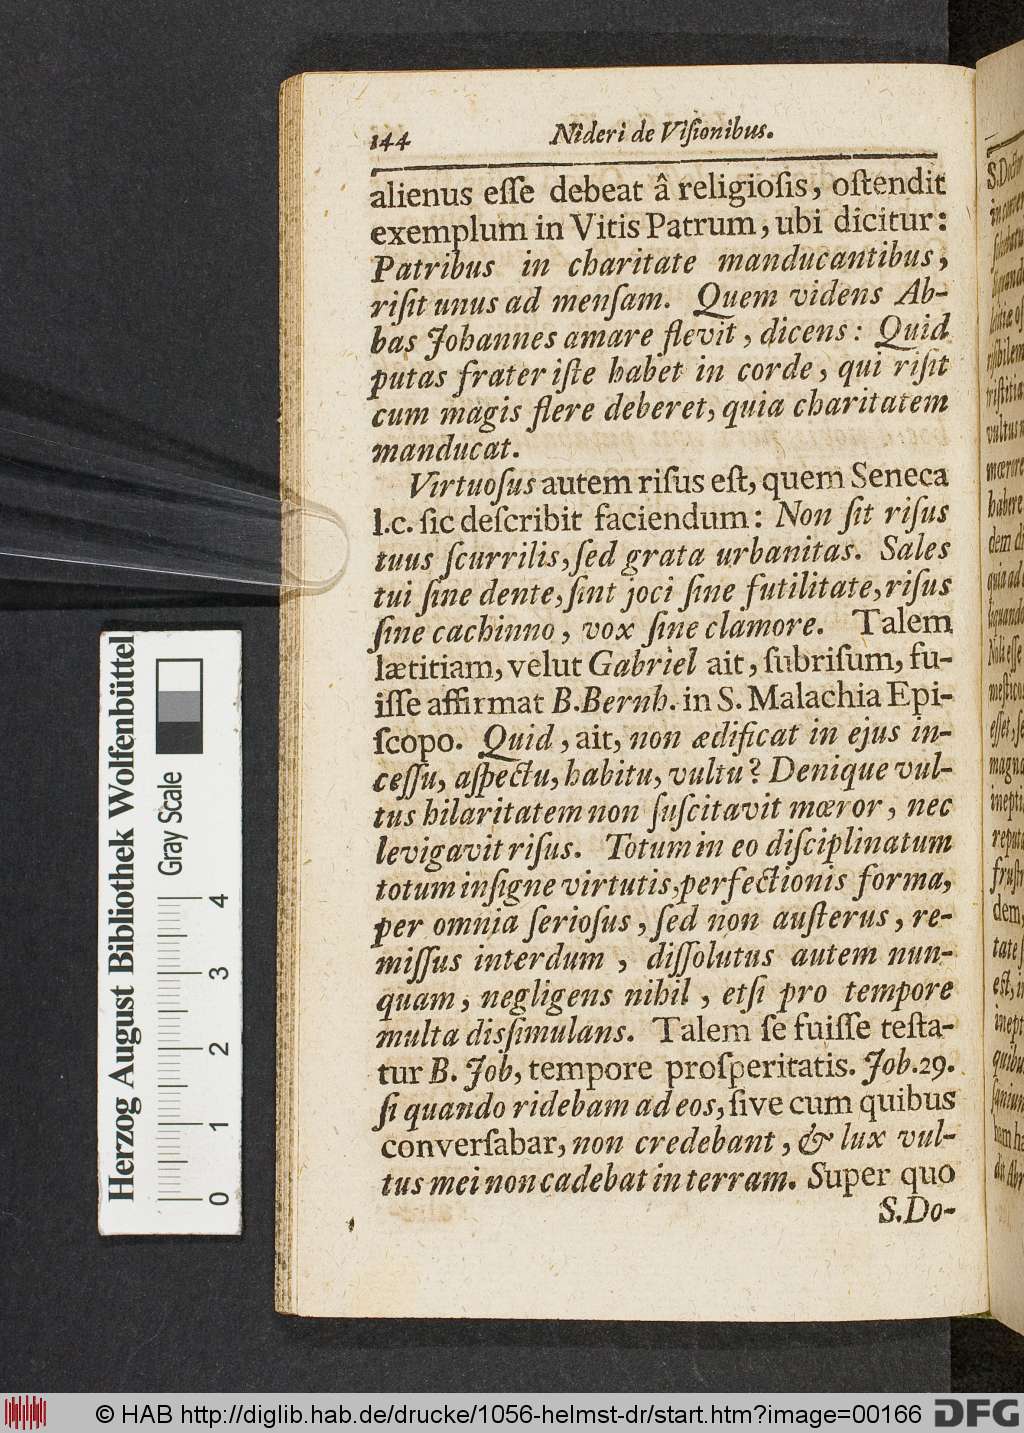 144 Nideri de Viſionibus.
alienus eſſe debeat â religioſis, oſtendit
exemplum in Vitis Patrum, ubi dicitur:
Patribus in charitate manducantibus,
riſit unus ad menſam. Quem videns Ab-
bas Johannes amare flevit, dicens: Quid
putas frater iſte habet in corde, qui riſit
cum magis flere deberet, quia charitatem
manducat.
Virtuoſus autem riſus eſt, quem Seneca
l.c. ſic deſcribit faciendum: Non ſit riſus
tuus ſcurrilis, ſed grata urbanitas. Sales
tui ſine dente, ſint joci ſine futilitate, riſus
ſine cachinno, vox ſine clamore. Talem
lætitiam, velut Gabriel ait, ſubriſum, fu-
iſſe affirmat B. Bernh. in S. Malachia Epi-
ſcopo. Quid, ait, non ædificat in ejus in-
ceſſu, aſpectu, habitu, vultu? Denique vul-
tus hilaritatem non ſuſcitavit mœror, nec
levigavit riſus. Totum in eo diſciplinatum
totum inſigne virtutis, perfectionis forma,
per omnia ſerioſus, ſed non auſterus, re-
miſſus interdum, diſſolutus autem nun-
quam, negligens nihil, etſi pro tempore
multa disſimulans. Talem ſe fuiſſe teſta-
tur B. Job, tempore proſperitatis. Job. 29.
ſi quando ridebam ad eos, ſive cum quibus
converſabar, non credebant, & lux vul-
tus mei non cadebat in terram. Super quo
S. Do-
Herzog August Bibliothek Wolfenbüttel
Gray Scale
0 1 2 3 4
© HAB http://diglib.hab.de/drucke/1056-helmst-dr/start.htm?image=00166
DFG